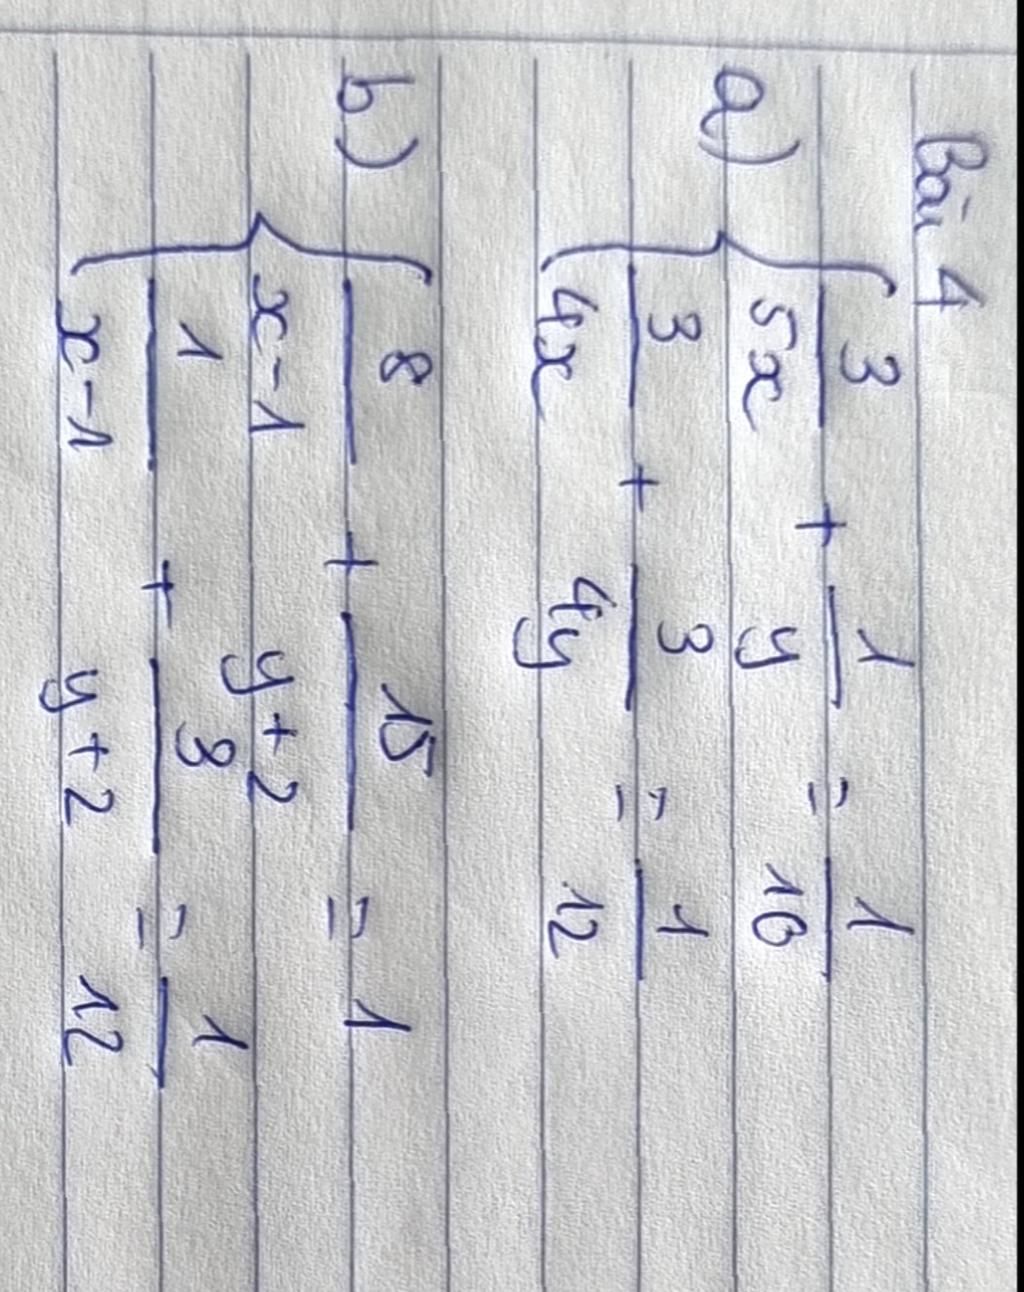 Bài 4
a) { 3/5x + 1/y = 1/10
3/4x + 3/4y = 1/12
b) { 8/x-1 + 15/y+2 = 1
1/x-1 + 3/y+2 = 1/12